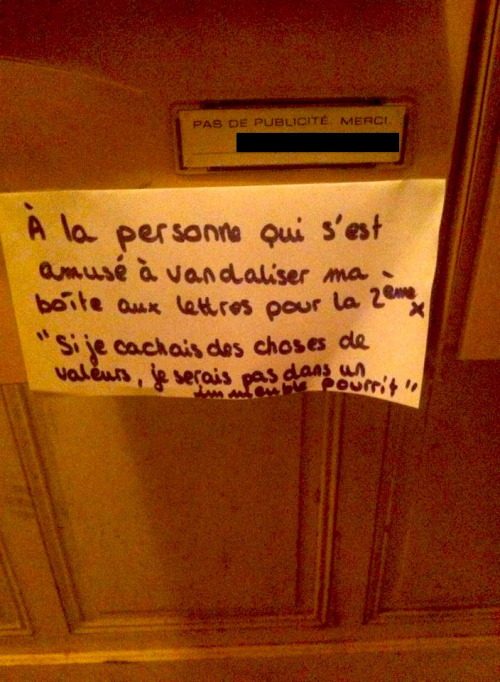 PAS DE PUBLICITÉ. MERCI.
À la personne qui s'est
amusé à vandaliser ma
boîte aux lettres pour la 2ème x
"Si je cachais des choses de
valeurs, je serais pas dans un
immeuble pourrit"